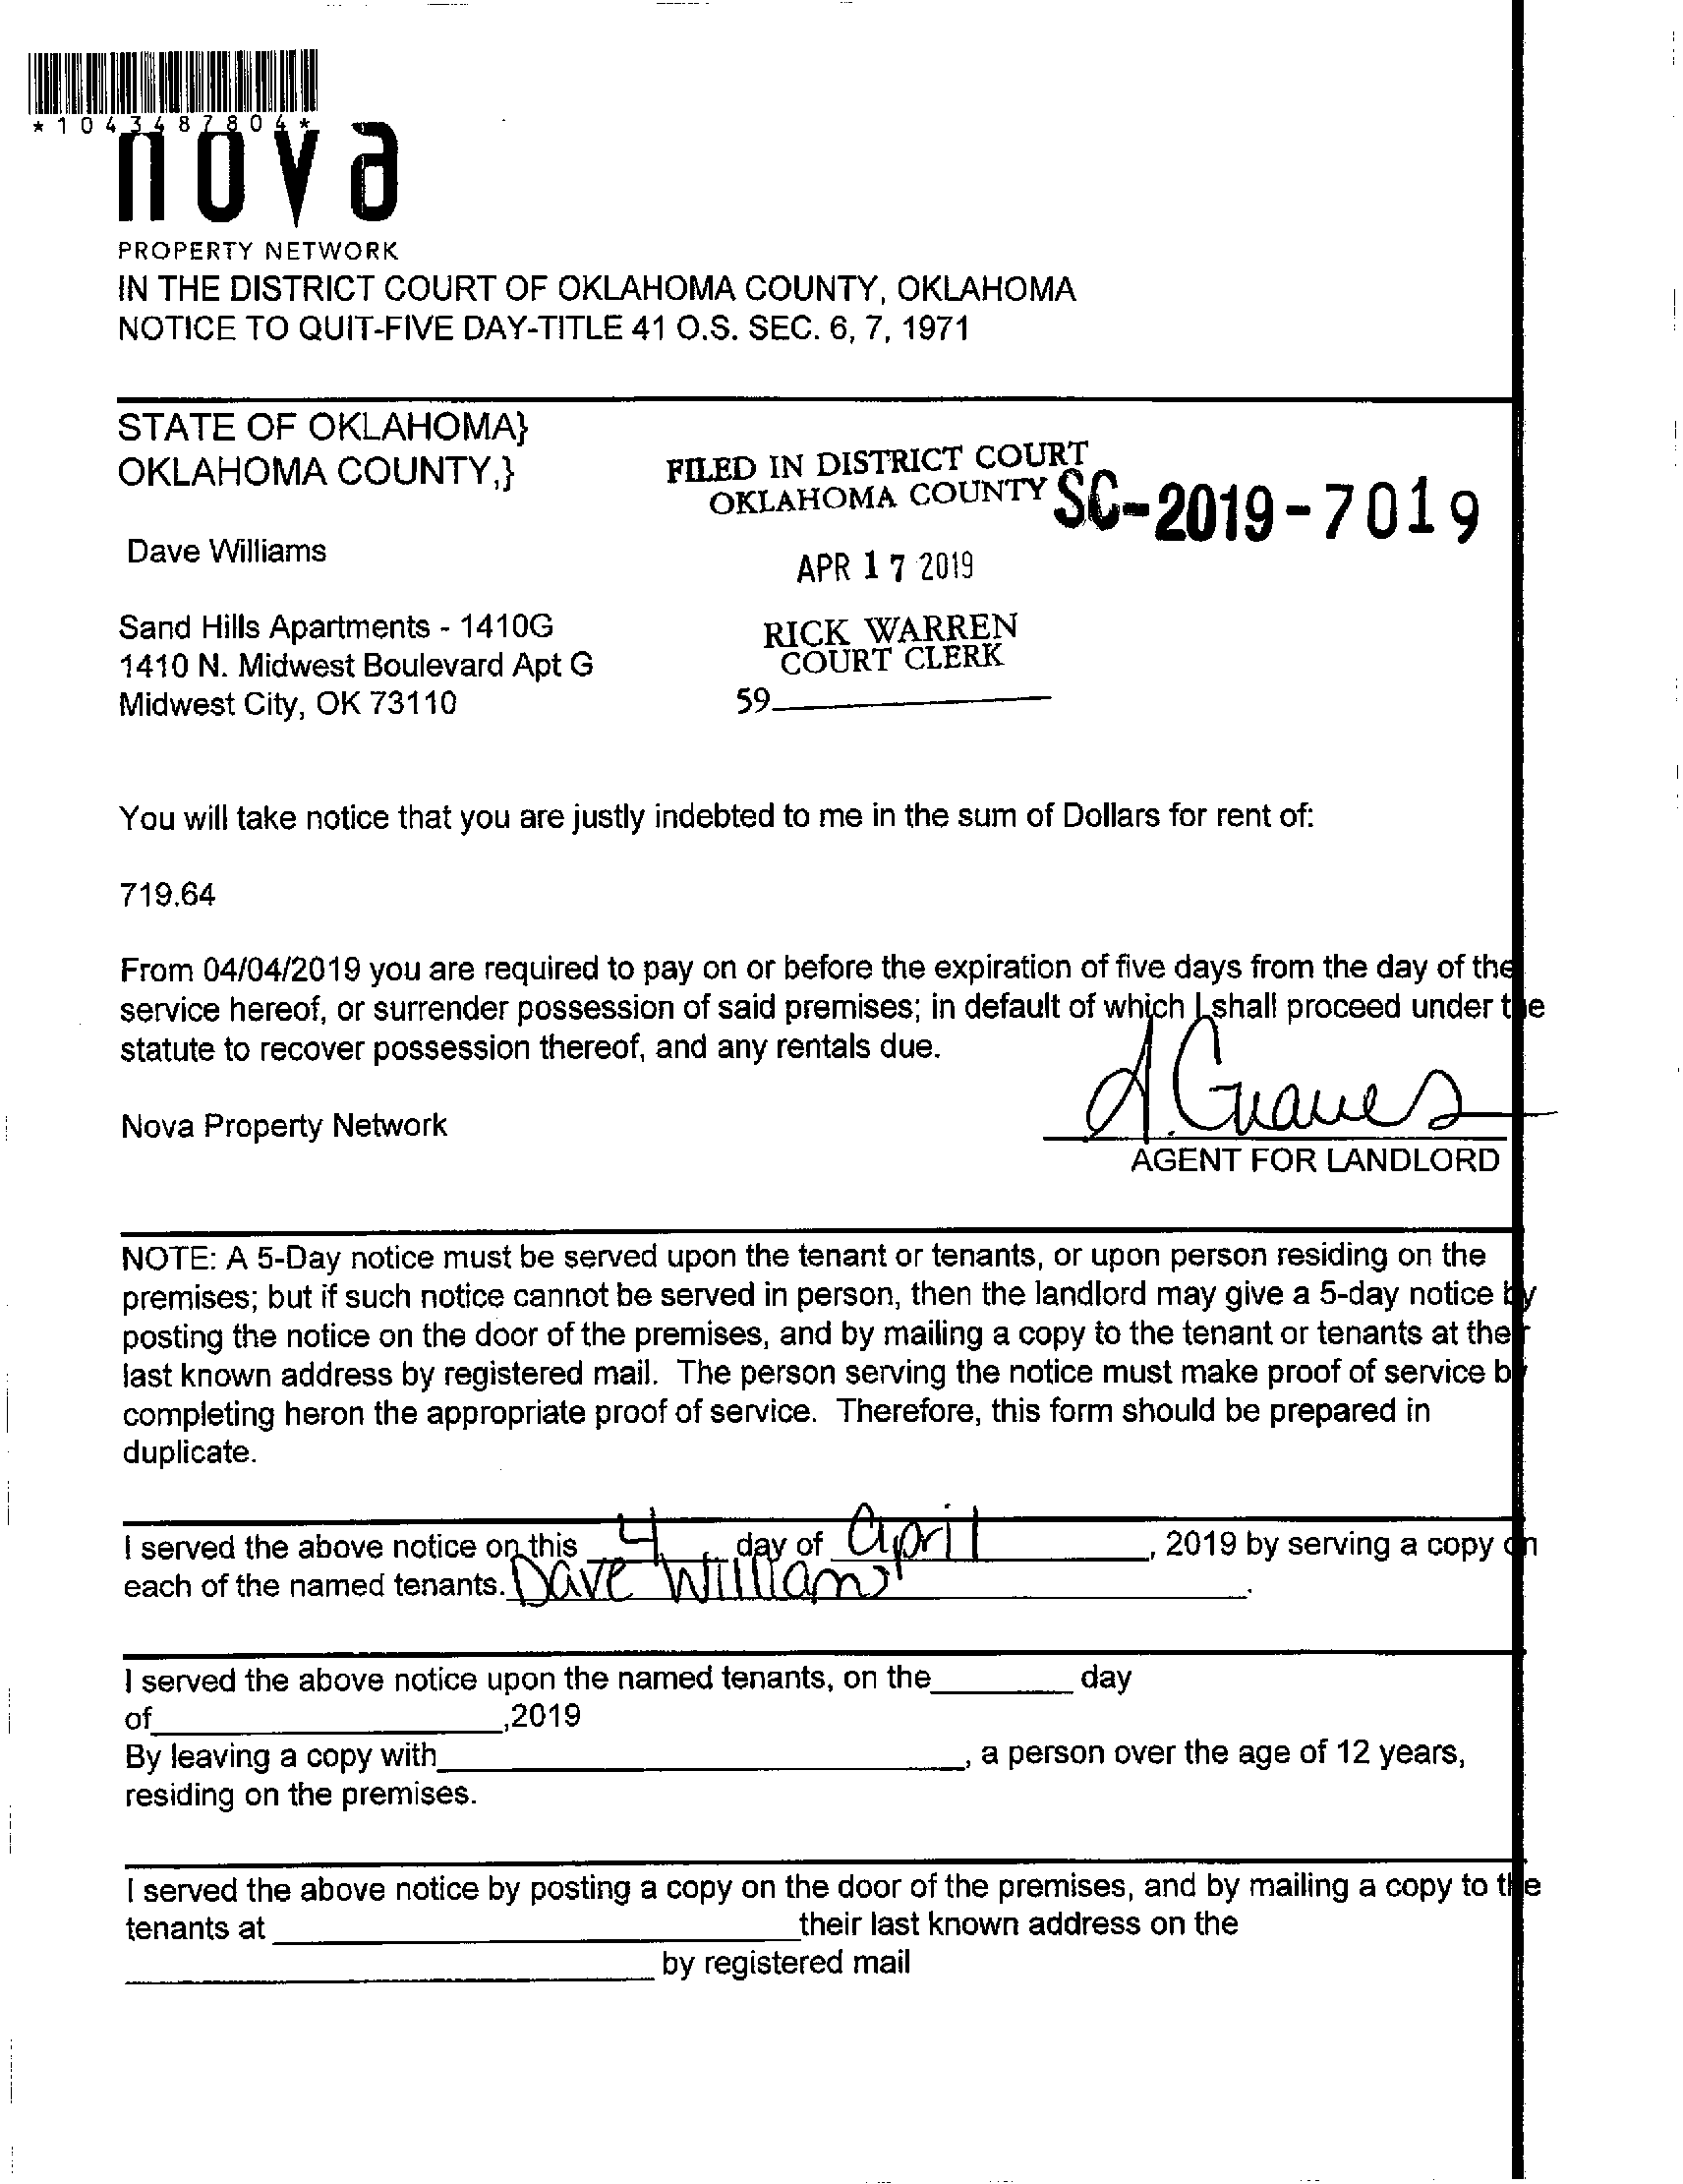 *1043487804*
nova
PROPERTY NETWORK
IN THE DISTRICT COURT OF OKLAHOMA COUNTY, OKLAHOMA
NOTICE TO QUIT-FIVE DAY-TITLE 41 O.S. SEC. 6, 7, 1971
STATE OF OKLAHOMA}
OKLAHOMA COUNTY,}
FILED IN DISTRICT COURT
OKLAHOMA COUNTY
SC-2019-7019
Dave Williams
APR 17 2019
Sand Hills Apartments - 1410G
1410 N. Midwest Boulevard Apt G
Midwest City, OK 73110
RICK WARREN
COURT CLERK
59
You will take notice that you are justly indebted to me in the sum of Dollars for rent of:
719.64
From 04/04/2019 you are required to pay on or before the expiration of five days from the day of the
service hereof, or surrender possession of said premises; in default of which I shall proceed under the
statute to recover possession thereof, and any rentals due.
Nova Property Network
A. Graves
AGENT FOR LANDLORD
NOTE: A 5-Day notice must be served upon the tenant or tenants, or upon person residing on the
premises; but if such notice cannot be served in person, then the landlord may give a 5-day notice by
posting the notice on the door of the premises, and by mailing a copy to the tenant or tenants at their
last known address by registered mail. The person serving the notice must make proof of service by
completing heron the appropriate proof of service. Therefore, this form should be prepared in
duplicate.
I served the above notice on this 4 day of April, 2019 by serving a copy on
each of the named tenants. Dave Williams.
I served the above notice upon the named tenants, on the ________ day
of ____________________,2019
By leaving a copy with ______________________________, a person over the age of 12 years,
residing on the premises.
I served the above notice by posting a copy on the door of the premises, and by mailing a copy to the
tenants at ______________________________ their last known address on the
______________________________ by registered mail